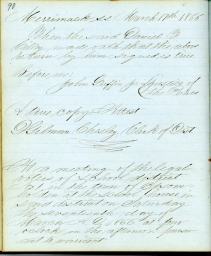 90
Merrimack ss March 19th 1866
Then the said Daniel
made oath that the above
return by him signed is true
Before me
John Justice of
the Peace
A true copy Attest
Clerk of Dist
At a meeting of the legal
voters of School district
No 1 in the town of Epsom
at the School House in
said district on Saturday
the seventeenth day of
March A D 1866 at four
o'clock in the afternoon pursu
ant to warrant